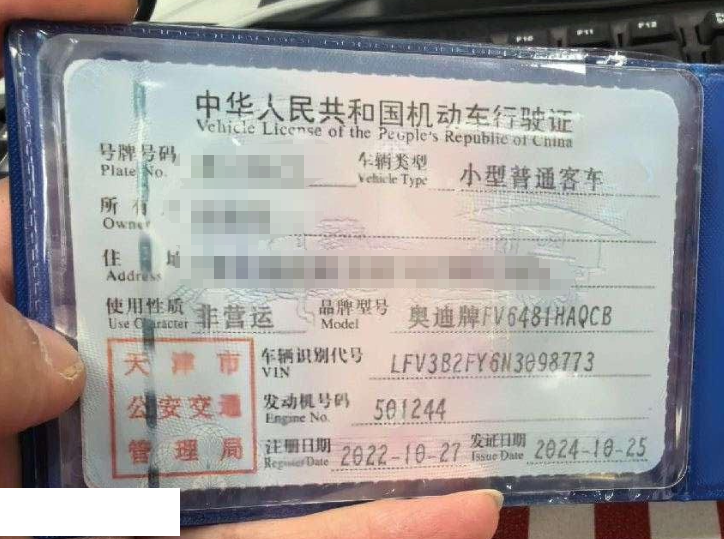 F10 F11 F12
中华人民共和国机动车行驶证
Vehicle License of the People's Republic of China
号牌号码 车辆类型 小型普通客车
Plate No. Vehicle Type
所有
Owner
住 址
Address
使用性质 非营运 品牌型号 奥迪牌FV6481HAQCB
Use Character Model
天津市 车辆识别代号 LFV3B2FY6N3098773
VIN
公安交通 发动机号码 501244
Engine No.
管理局 注册日期 2022-10-27 发证日期 2024-10-25
Register Date Issue Date